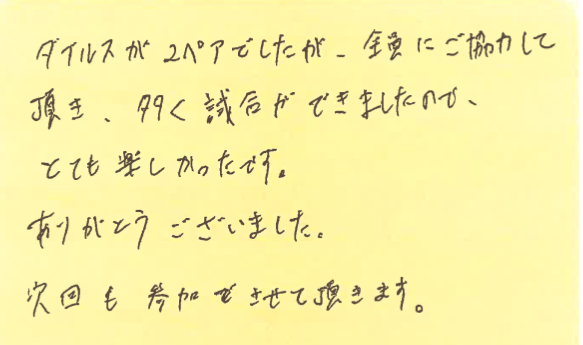 ダイルスが2ペアでしたが、全員にご協力して
頂き、多く試合ができましたので、
とても楽しかったです。
ありがとうございました。
次回も参加させて頂きます。